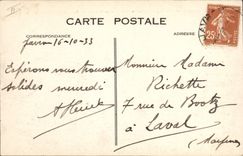 CARTE POSTALE
CORRESPONDANCE
ADRESSE
Javron 16-10-33
Espérons vous trouver
solides mercredi
Monsieur Madame
Richette
7 rue de Bootz
à Laval
(Mayenne)
25